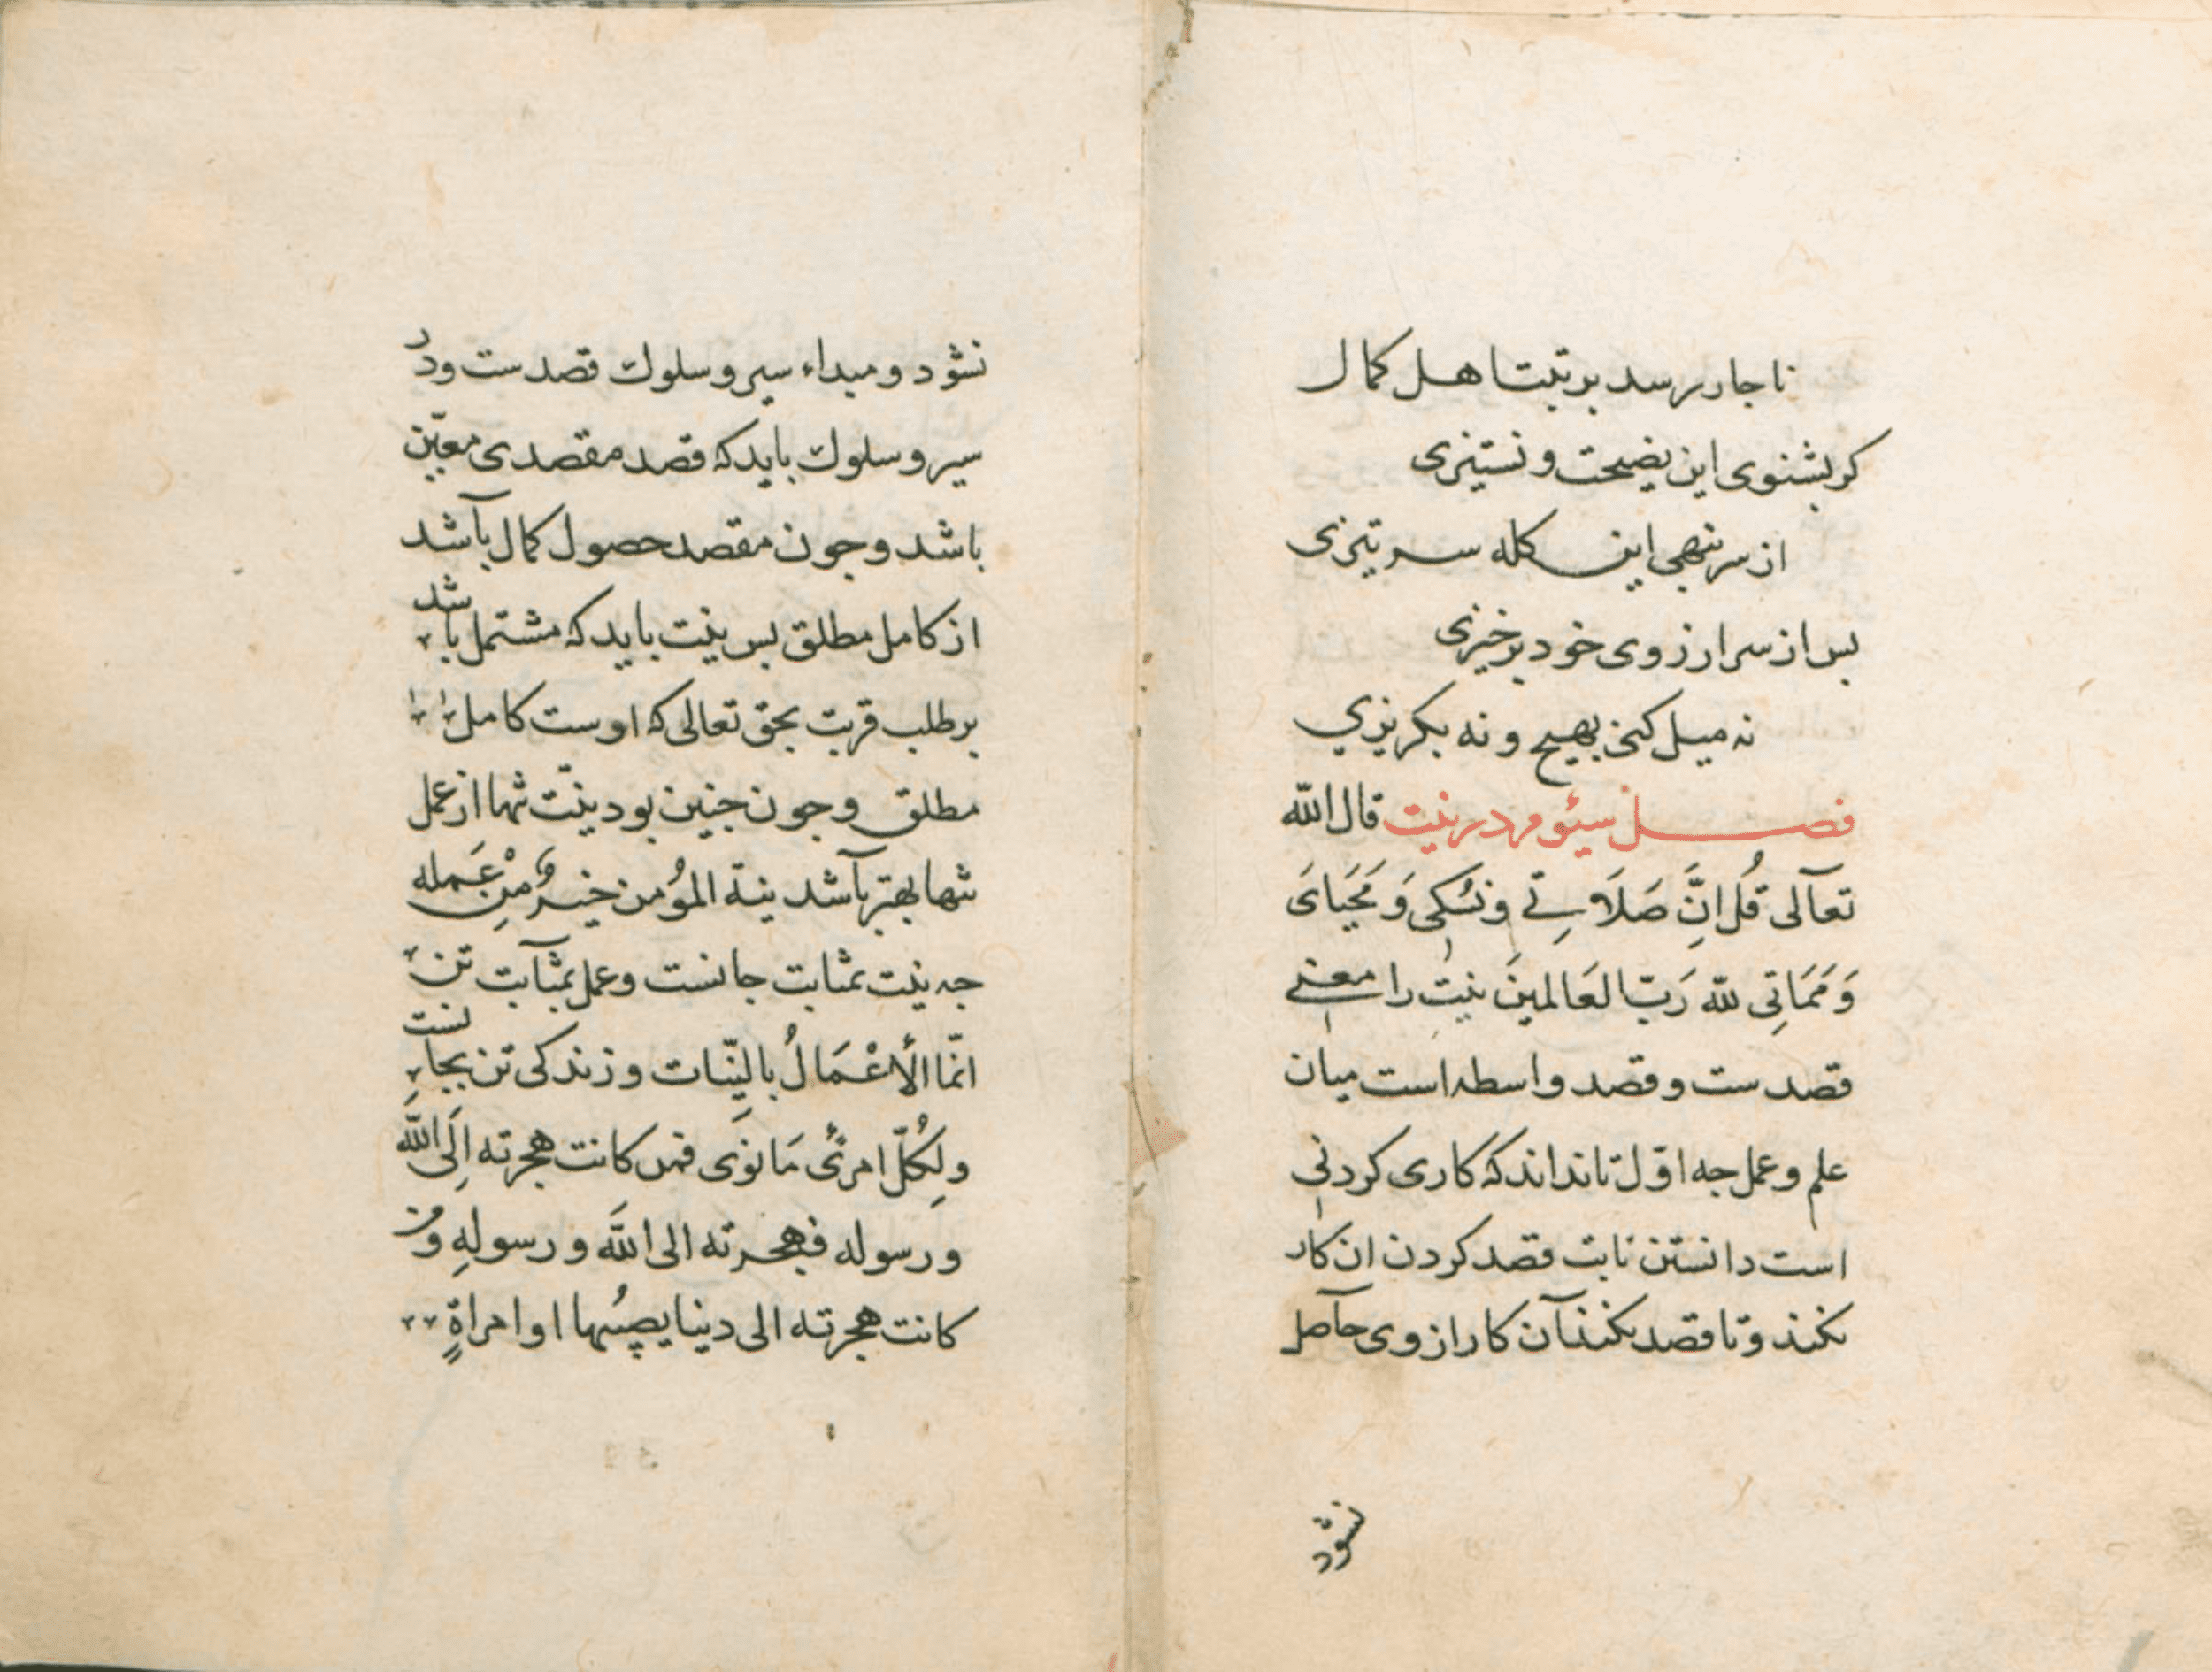 ناجار برسد برتبت اهل كمال
كر بشنوى اين نصيحت و نستيزى
از سر بنهى اين كله سر تيزى
بس از سر ارزوى خود برخيزى
نه ميل كنى بهيج و نه بكريزي
فصل سيوم در نيت قال الله
تعآلى قُل اِنَّ صَلَاتِے ونسُكِى وَمَحيَاىَ
وَمَمَاتِى لله رَبّ العَالمينَ نيت را معنے
قصدست و قصد واسطه است ميان
علم و عمل جه اوّل تا نداند كه كارى كردنى
است دانستن ثابت قصد كردن ان كار
نكند و تا قصد نكند آن كار از وى حآصل
نشود
نشود و مبداء سير و سلوك قصدست و در
سير و سلوك بايد كه قصد مقصدى معيّن
باشد و جون مقصد حصول كمال بآشد
از كامل مطلق بس نيت بايد كه مشتمل باشد
بر طلب قربت بحق تعالى كه اوست كامل
مطلق و جون جنين بود نيّت تنها از عمل
تنها بهتر بآشد نية المؤمن خيرٌ مِنْ عَمله
جه نيت بمثابت جانست و عمل بمثآبت تن
انّما الأعْمَالُ بالنِيّات و زندكى تن بجانست
ولِكُلّ امرئ مَا نوَى فمن كانت هجرته اِلَى اللَّه
ورسوله فهجرته الى اللَّه ورسولهِ ومن
كانت هجرته الى دينا يصِيُبها او امراةٍ